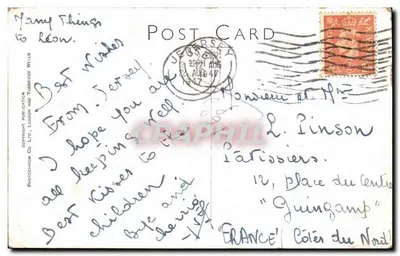 Many Things
to Léon.
POST CARD
JERSEY
Best Wishes
From Jersey
I hope you are
all keeping well
Best Kisses to the
children
Bye and
Monsieur et Mme
L. Pinson
Pâtissiers
12, place du Centre
"Guingamp"
"FRANCE" (Côtes du Nord)
COPYRIGHT PUBLICATION
PHOTOCHROM CO. LTD., LONDON AND TUNBRIDGE WELLS